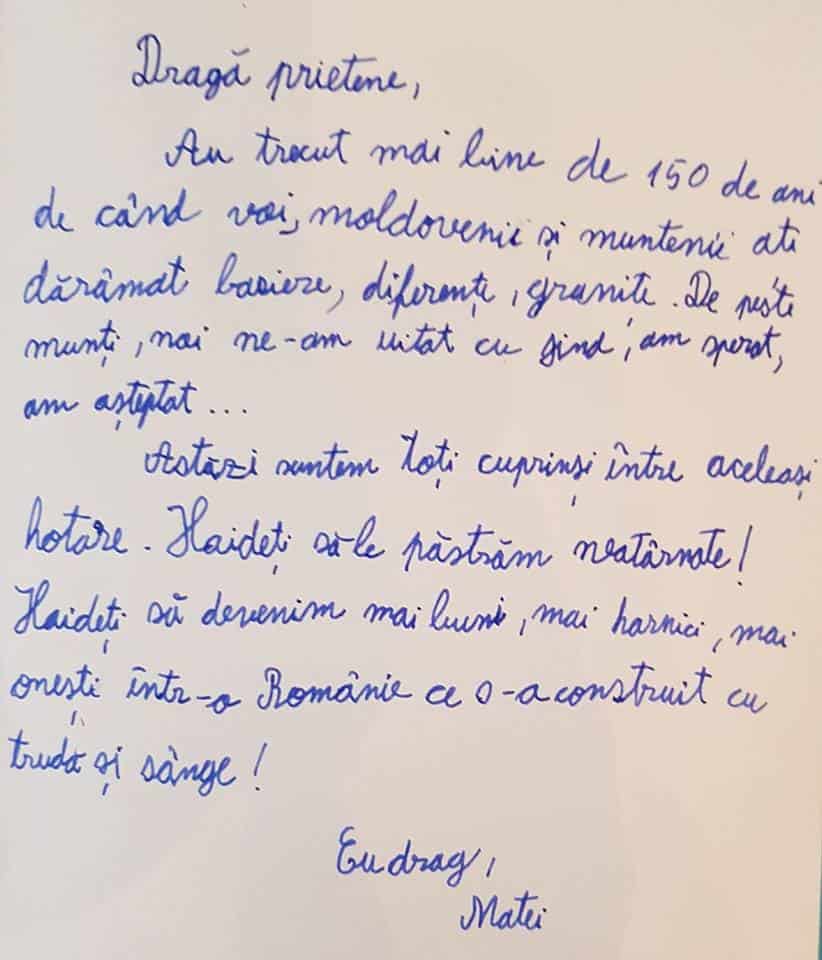 Dragă prietene,
Au trecut mai bine de 150 de ani
de când voi, moldovenii și muntenii ati
dărâmat bariere, diferențe, granițe. De peste
munți, noi ne-am uitat cu jind, am sperat,
am așteptat...
Astăzi suntem toți cuprinși între aceleași
hotare. Haideți să-le păstrăm neatârnate!
Haideți să devenim mai buni, mai harnici, mai
onești într-o Românie ce s-a construit cu
trudă și sânge!
Cu drag,
Matei